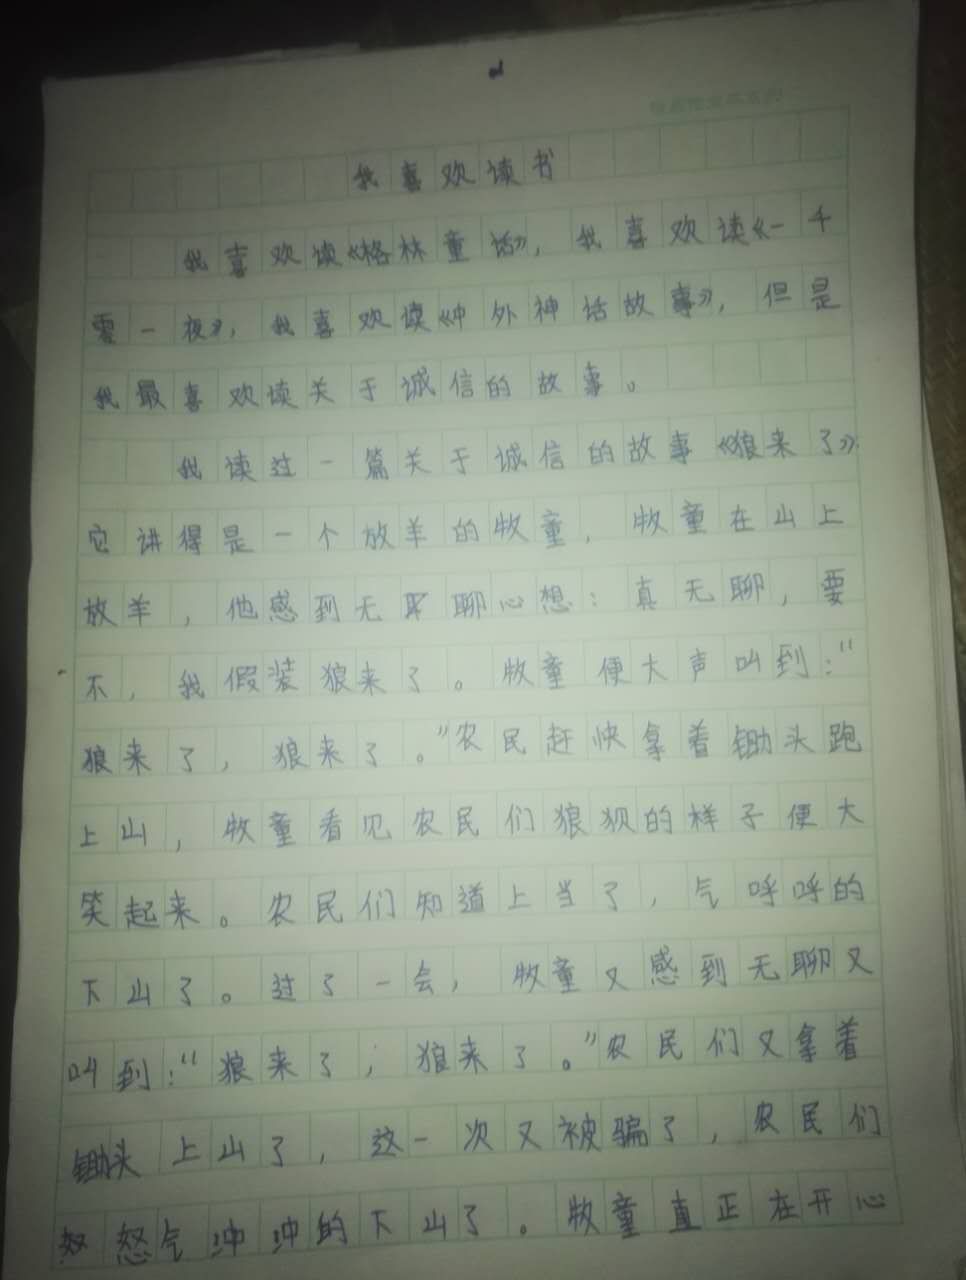 我喜欢读书
我喜欢读《格林童话》，我喜欢读《一千
零一夜》，我喜欢读《中外神话故事》，但是
我最喜欢读关于诚信的故事。
我读过一篇关于诚信的故事《狼来了》
它讲得是一个放羊的牧童，牧童在山上
放羊，他感到无聊心想：真无聊，要
不，我假装狼来了。牧童便大声叫到：“
狼来了，狼来了。”农民赶快拿着锄头跑
上山，牧童看见农民们狼狈的样子便大
笑起来。农民们知道上当了，气呼呼的
下山了。过了一会，牧童又感到无聊又
叫到：“狼来了，狼来了。”农民们又拿着
锄头上山了，这一次又被骗了，农民们
怒气冲冲的下山了。牧童直正在开心